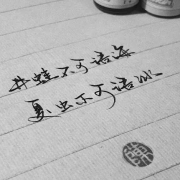 井蛙不可语海
夏虫不可语冰